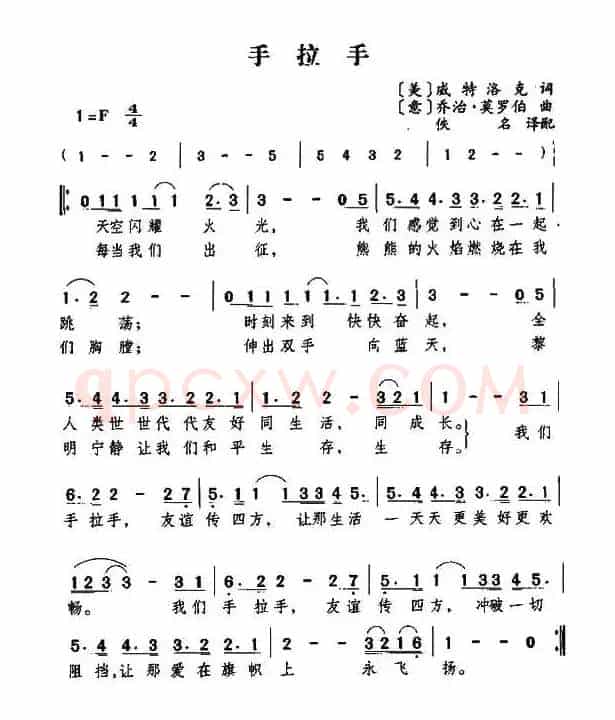 手拉手
〔美〕威特洛克 词
〔意〕乔治·莫罗伯 曲
佚名 译配
1=F 4/4
(1 - - 2 | 3 - - 5 | 5 4 3 2 | 1 - - 2 - )
‖: 0 1 1 1 1 1 1 2·3 | 3 - - 0 5 | 5·4 4·3 3·2 2·1 |
天空闪耀 火光, 我们感觉到心在一起
每当我们 出征, 熊熊的火焰燃烧在我
1·2 2 - - | 0 1 1 1 1 1 1·2 3 | 3 - - 0 5 |
跳荡; 时刻来到 快快奋起, 全
们胸膛; 伸出双手 向蓝天, 黎
5·4 4·3 3·2 2·1 | 1·2 2 - 3 2 1 | 1 - - 3 1 |
人类世世代代友好同生活, 同成长。 我们
明宁静让我们和平生存, 生存。
6·2 2 - 2 7 | 5·1 1 1 3 3 4 5 | 5·4 4·3 3·2 2·1 |
手拉手, 友谊传四方, 让那生活 一天天更美好更欢
1 2 3 3 - 3 1 | 6·2 2 - 2 7 | 5·1 1 1 3 3 4 5 |
畅。 我们手拉手, 友谊传四方, 冲破一切
5·4 4·3 3·2 2·1 | 2 - - 3 2 1 6 | 1 - - 0 :‖
阻挡,让那爱在旗帜上 永飞扬。
qpcxw.COM